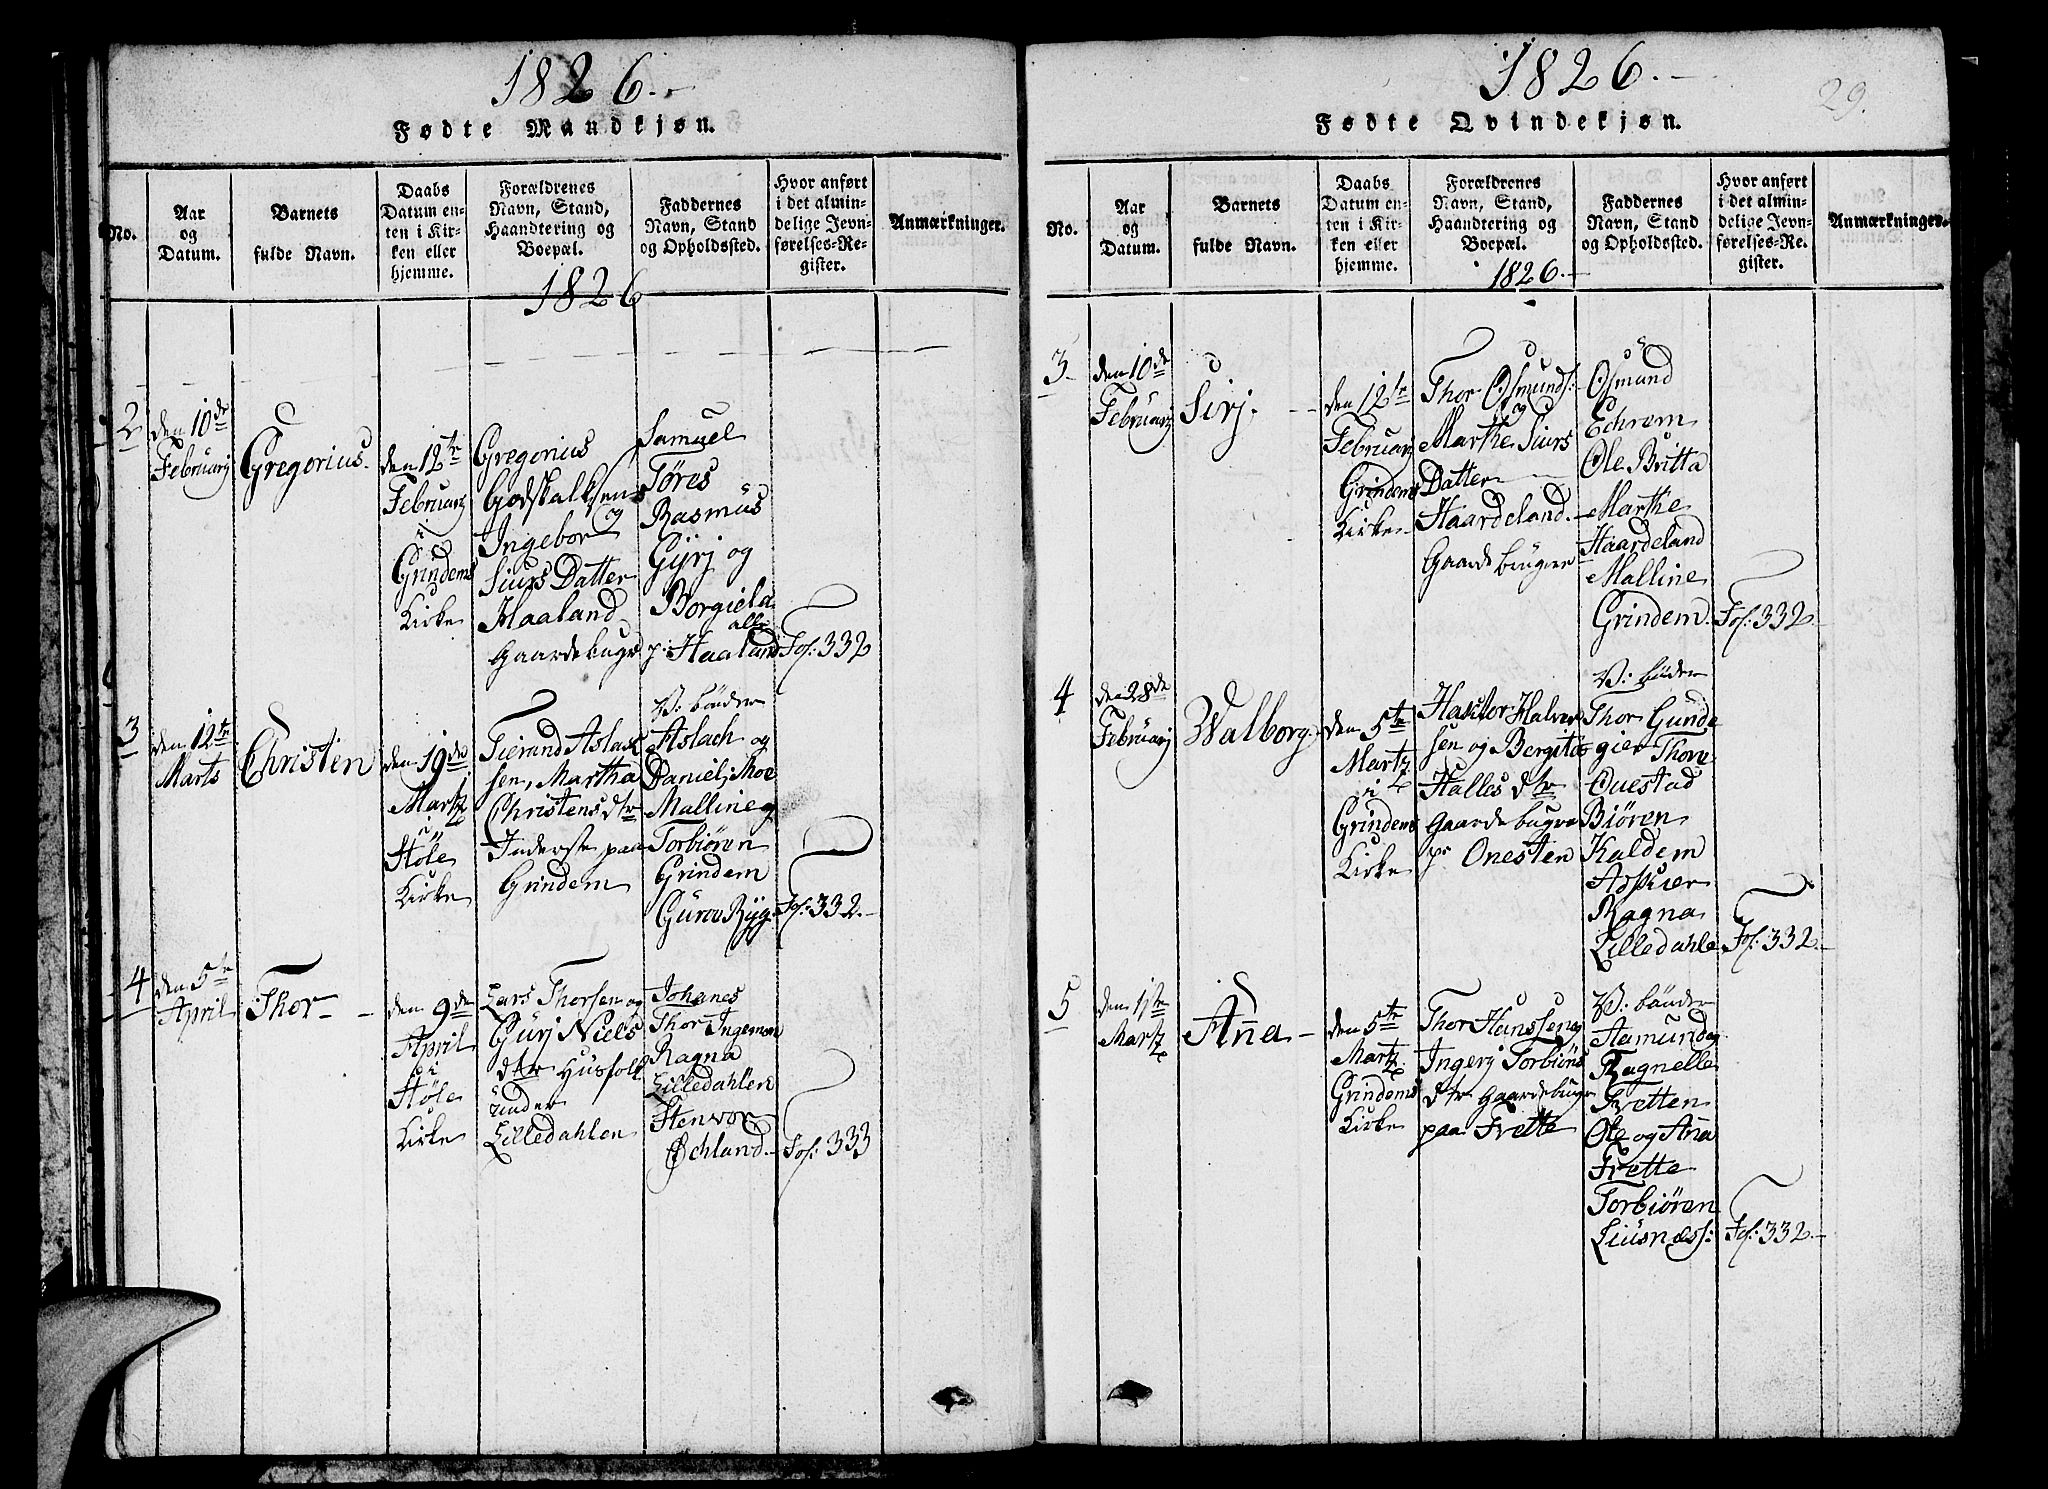 1826.
Fødte Mandkjøn.
No.
Aar
og
Datum.
Barnets
fulde Navn.
Daabs
Datum en-
ten i Kir-
ken eller
hjemme.
Forældrenes
Navn, Stand,
Haandtering og
Boepæl.
Faddernes
Navn, Stand
og Opholdssted.
Hvor anført
i det almin-
delige Jevn-
førelses-Re-
gister.
Anmærkninger.
1826
2
den 10de
Februarij
Gregorius.
den 12te
Februarij
i
Grindems
Kirke
Gregorius
Godskalksen
og
Ingebor
Siurs Datter
Haaland
Gaardebuger
Samuel
Tøres
Rasmus
Gyrj og
Borgiela
alle
p: Haaland
Fol: 332
3
den 12te
Marts
Christen
den 19de
Martz
i
Høle
Kirke
Tierand Aslak
sen, Martha
Christens dtr
Inderste paa
Grindem
V: bönder
Aslach og
Daniel; Moe
Malline og
Torbiören
Grindem
Guroe Ryg.
Fol: 332.
4
den 5te
April
Thor
den 9de
April
i
Høle
Kirke
Lars Thorsen og
Gurj Niels
dtr Husfolk
under
Lilledahlen
Johanes
Thor Ingemon
Ragna
Lilledahlen
Stenvor
Øchland.
Fol: 333
1826.
29.
Fødte Qvindekjøn.
No.
Aar
og
Datum.
Barnets
fulde Navn.
Daabs
Datum en-
ten i Kir-
ken eller
hjemme.
Forældrenes
Navn, Stand,
Haandtering og
Boepæl.
Faddernes
Navn, Stand
og Opholdssted.
Hvor anført
i det almin-
delige Jevn-
førelses-Re-
gister.
Anmærkninger.
1826.
3
den 10de
Februarij
Sirj.
den 12te
Februarij
Grindems
Kirke
Thor Osmunds:
og
Marthe Siurs
Datter
Haardeland.
Gaardebruger
Osmund
Echrem
Ole Britta
Marthe
Haardeland
Malline
Grindem.
Fol: 332.
4
den 28de
Februarij
Walborg.
den 5te
Martz
i
Grindems
Kirke
Halver
sen og Bergitæ
Halles dtr
Gaardebuger
p: Onesten
V: bönder
Thor Gunde
gier Thore
Ouestad
Biören
Kaldem
Aspier
Ragna
Lilledahle
Fol: 332.
5
den 1ste
Martz
Aña
den 5te
Martz
Grindems
Kirke
Thor Hanssen og
Ingerj Torbiöns
dtr Gaardebuger
paa Frette
V: bönder
Aamund og
Ragnelle
Fretten
Ole og Aña
Frette
Torbiören
Liusnæs:
Fol: 332.